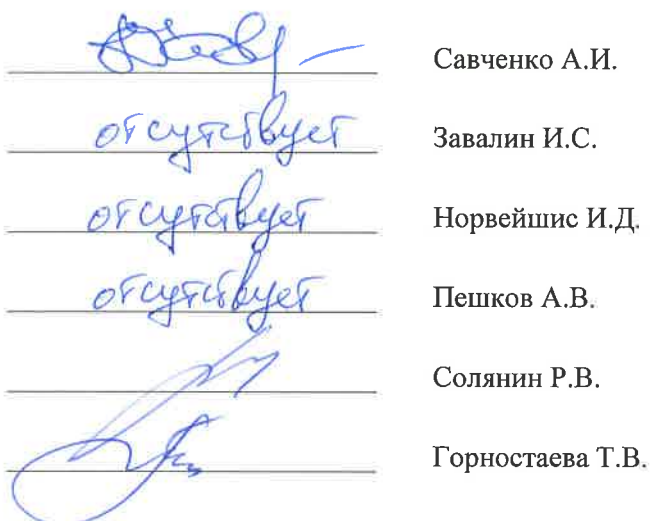 Савченко А.И.
отсутствует Завалин И.С.
отсутствует Норвейшис И.Д.
отсутствует Пешков А.В.
Солянин Р.В.
Горностаева Т.В.